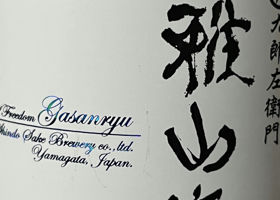 九郎左衛門
雅山
Freedom Gasanryu
Shindo Sake Brewery co.,ltd.
Yamagata, Japan.